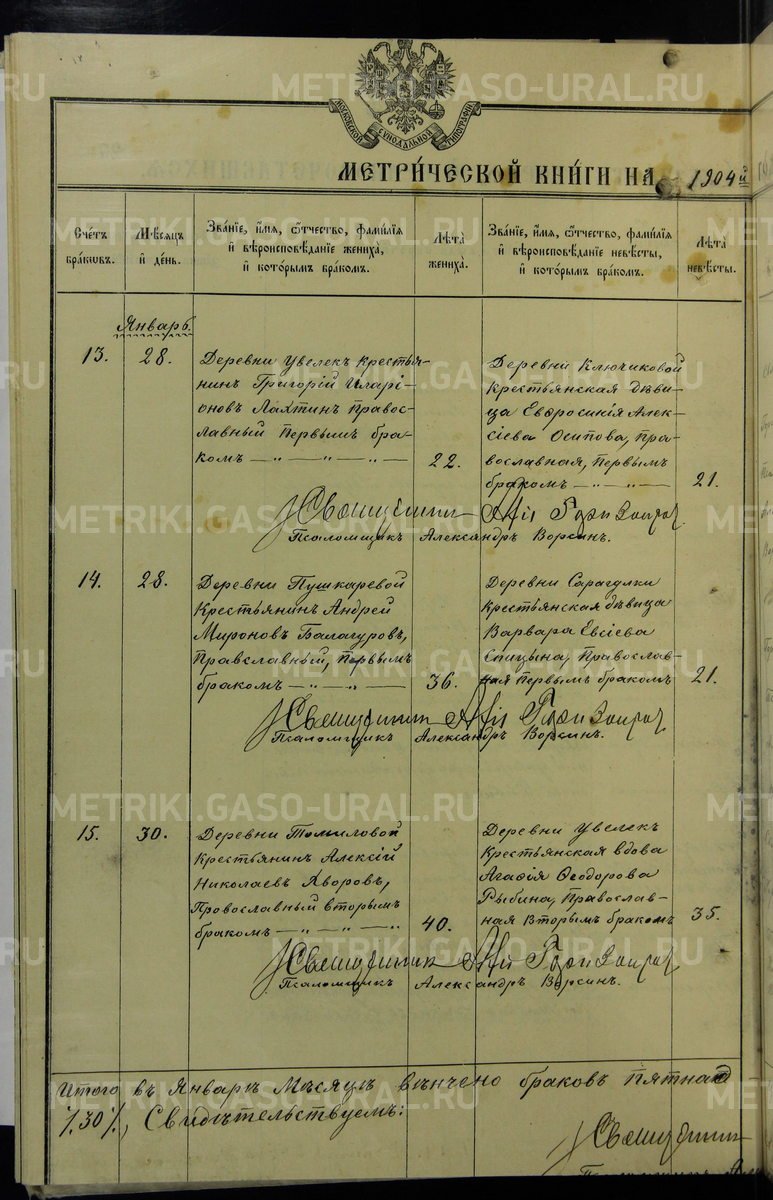 METRIKI.GASO-URAL.RU
МОСКОВСКОЙ СѴНОДАЛЬНОЙ ТИПОГРАФІИ
МЕТРИ́ЧЕСКОЙ КНИ́ГИ НА 1904й
Сче́тъ бра́ковъ.
Мѣ́сяцъ и҆ де́нь.
Зва́нїе, и҆́мя, ѻ҆́тчество, фами́лїя и҆ вѣроисповѣ́данїе жениха̀, и҆ кото́рымъ бра́комъ.
Лѣ́та жениха̀.
Зва́нїе, и҆́мя, ѻ҆́тчество, фами́лїя и҆ вѣроисповѣ́данїе невѣ́сты, и҆ кото́рымъ бра́комъ.
Лѣ́та невѣ́сты.
Январь.
13.
28.
Деревни Увелекъ Крестья-
нинъ Григорій Иларі-
оновъ Лахтинъ Правос-
лавный Первымъ бра-
комъ — „ — „ — „ —
22.
Деревни Ключиковой
Крестьянская дѣви-
ца Евфросинія Алек-
сіева Осипова, пра-
вославная, Первымъ
бракомъ — „ — „ —
21.
Священникъ
Псаломщикъ Александръ Ворсинъ.
14.
28.
Деревни Пушкаревой
Крестьянинъ Андрей
Мироновъ Балагуровъ,
Православный, Первымъ
бракомъ — „ — „ —
36.
Деревни Сарагулки
Крестьянская дѣвица
Варвара Евсіева
Спицына, Православ-
ная Первымъ бракомъ
21.
Священникъ
Псаломщикъ Александръ Ворсинъ.
15.
30.
Деревни Томиловой
Крестьянинъ Алексій
Николаевъ Яворовъ,
Провославный вторымъ
бракомъ — „ — „ — „
40.
Деревни Увелекъ
Крестьянская вдова
Агафія Ѳеодорова
Рыбина, Православ-
ная Вторымъ бракомъ
35.
Священникъ
Псаломщикъ Александръ Ворсинъ.
Итого въ Январѣ Мѣсяцѣ вѣнчено браковъ пятнад
Свидѣтельствуемъ:
Священникъ